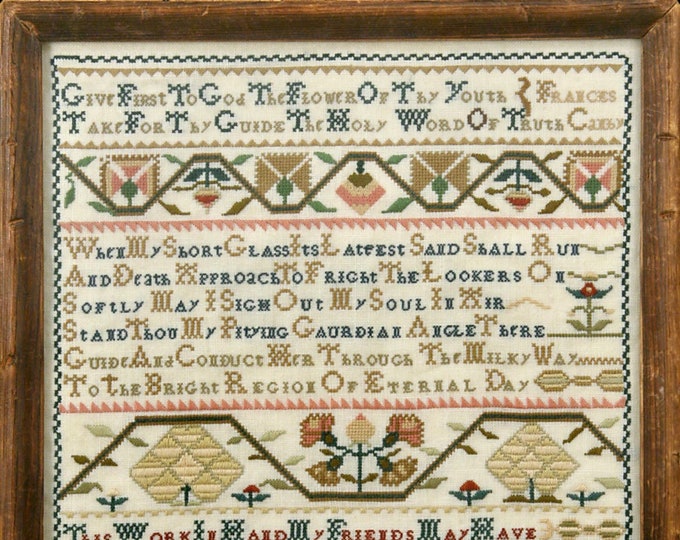 Give First To God The Flower Of Thy Youth } Frances
Take For Thy Guide The Holy Word Of Truth Canby
When My Short Glass Its Latfest Sand Shall Run
And Death Approach To Fright The Lookers On
Softly May I Sigh Out My Soul In Air
Stand Thou My Pitying Gaurdian Angle There
Guide And Conduct Her Through The Milky Way
To the Bright Region Of Eternal Day
This Work In Hand My Friends May Have